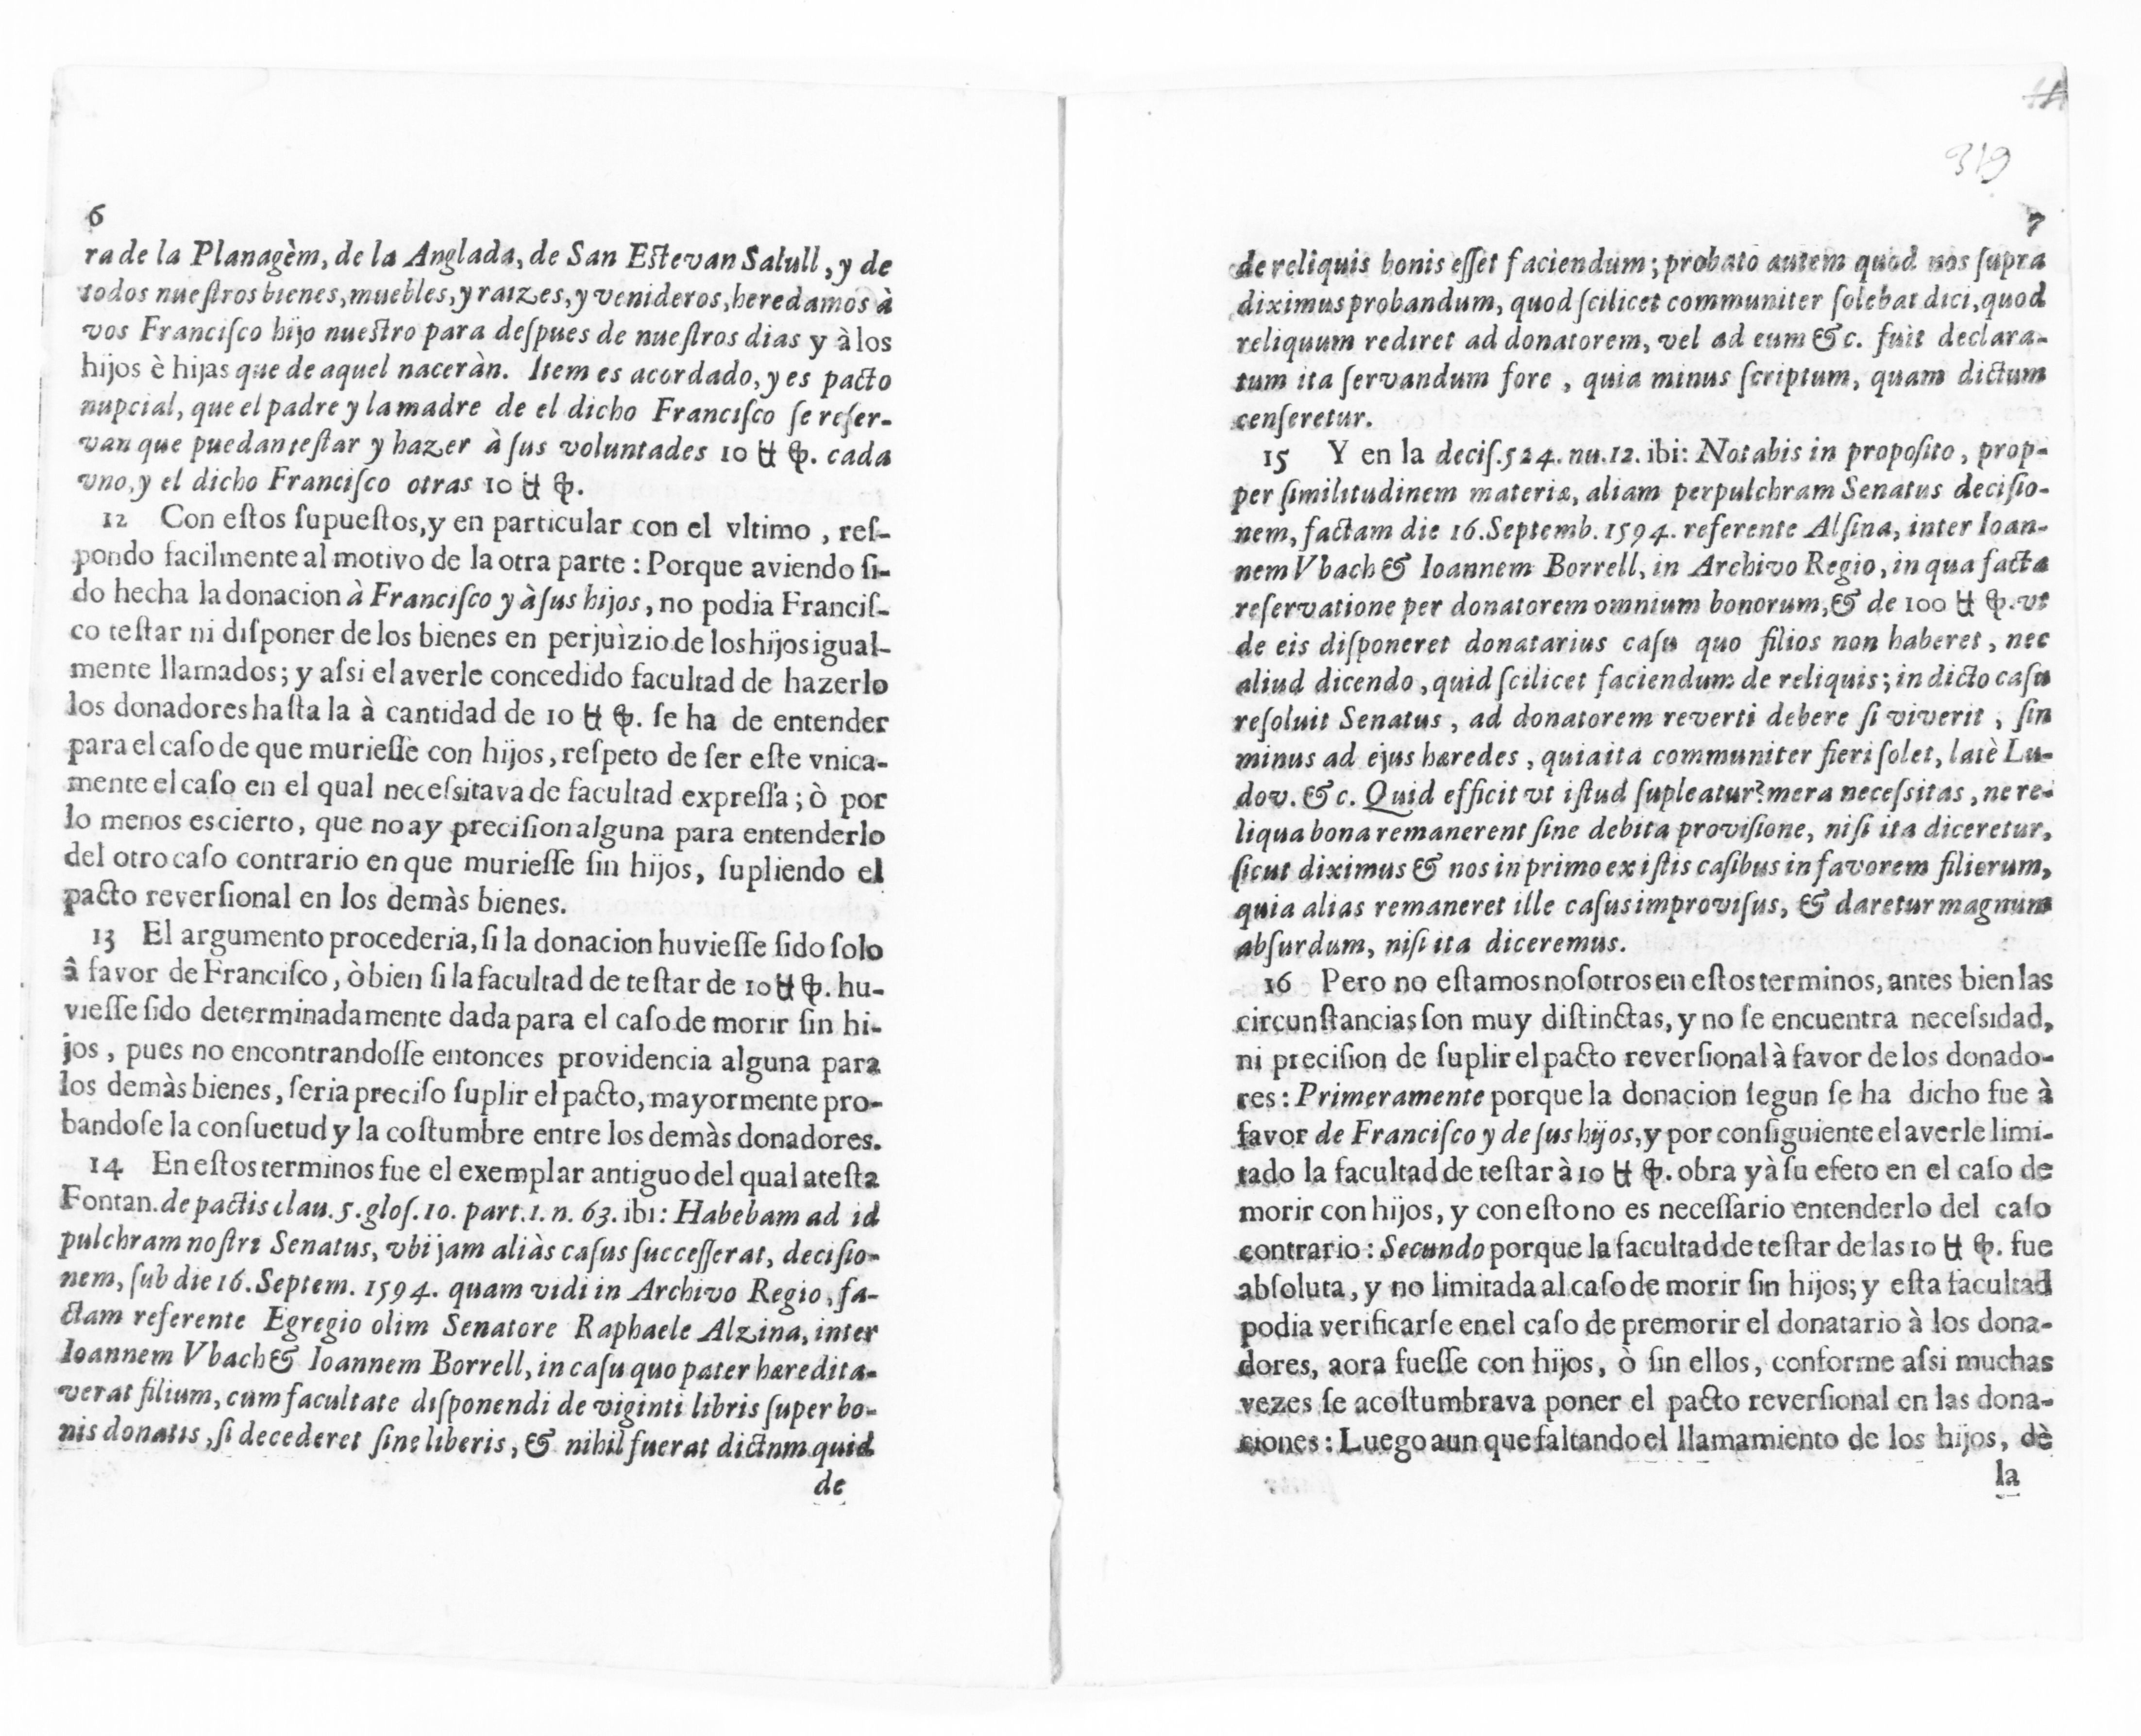 6
ra de la Planagèm, de la Anglada, de San Estevan Salull, y de
todos nueſtros bienes, muebles, y raizes, y venideros, heredamos à
vos Franciſco hijo nuestro para deſpues de nueſtros dias y à los
hijos è hijas que de aquel naceràn. Item es acordado, y es pacto
nupcial, que el padre y la madre de el dicho Franciſco ſe reſer-
van que puedan teſtar y hazer à ſus voluntades 10 ꟈ ꝕ. cada
vno, y el dicho Franciſco otras 10 ꟈ ꝕ.
12 Con eſtos ſupueſtos, y en particular con el vltimo , reſ-
pondo facilmente al motivo de la otra parte : Porque aviendo ſi-
do hecha la donacion à Franciſco y à ſus hijos, no podia Franciſ-
co teſtar ni diſponer de los bienes en perjuìzio de los hijos igual-
mente llamados; y aſsi el averle concedido facultad de hazerlo
los donadores haſta la à cantidad de 10 ꟈ ꝕ. ſe ha de entender
para el caſo de que murieſſe con hijos, reſpeto de ſer eſte vnica-
mente el caſo en el qual neceſsitava de facultad expreſſa; ò por
lo menos es cierto, que no ay preciſion alguna para entenderlo
del otro caſo contrario en que murieſſe ſin hijos, ſupliendo el
pacto reverſional en los demàs bienes.
13 El argumento procederia, ſi la donacion huvieſſe ſido ſolo
â favor de Franciſco, ò bien ſi la facultad de teſtar de 10 ꟈ ꝕ. hu-
vieſſe ſido determinadamente dada para el caſo de morir ſin hi-
jos, pues no encontrandoſſe entonces providencia alguna para
los demàs bienes, ſeria preciſo ſuplir el pacto, mayormente pro-
bandoſe la conſuetud y la coſtumbre entre los demàs donadores.
14 En eſtos terminos fue el exemplar antiguo del qual ateſta
Fontan. de pactis clau. 5. gloſ. 10. part. 1. n. 63. ibi: Habebam ad id
pulchram noſtri Senatus, vbi jam aliàs caſus ſucceſſerat, deciſio-
nem, ſub die 16. Septem. 1594. quam vidi in Archivo Regio, fa-
ctam referente Egregio olim Senatore Raphaele Alzina, inter
Ioannem Vbach & Ioannem Borrell, in caſu quo pater hæredita-
verat filium, cum facultate diſponendi de viginti libris ſuper bo-
nis donatis, ſi decederet ſine liberis, & nihil fuerat dictnm quid
de
319
7
de reliquis bonis eſſet faciendum; probato autem quod nos ſupra
diximus probandum, quod ſcilicet communiter ſolebat dici, quod
reliquum rediret ad donatorem, vel ad eum &c. fuit declara-
tum ita ſervandum fore , quia minus ſcriptum, quam dictum
cenſeretur.
15 Y en la deciſ. 524. nu. 12. ibi: Notabis in propoſito, prop-
per ſimilitudinem materiæ, aliam perpulchram Senatus deciſio-
nem, factam die 16. Septemb. 1594. referente Alſina, inter Ioan-
nem Vbach & Ioannem Borrell, in Archivo Regio, in qua facta
reſervatione per donatorem omnium bonorum, & de 100 ꟈ ꝕ. vt
de eis diſponeret donatarius caſu quo filios non haberet, nec
aliud dicendo, quid ſcilicet faciendum de reliquis; in dicto caſu
reſoluit Senatus, ad donatorem reverti debere ſi viverit, ſin
minus ad ejus hæredes, quia ita communiter fieri ſolet, latè Lu-
dov. &c. Quid efficit vt iſtud ſupleatur? mera neceſsitas, ne re-
liqua bona remanerent ſine debita proviſione, niſi ita diceretur,
ſicut diximus & nos in primo ex iſtis caſibus in favorem filiorum,
quia alias remaneret ille caſus improviſus, & daretur magnum
abſurdum, niſi ita diceremus.
16 Pero no eſtamos noſotros en eſtos terminos, antes bien las
circunſtancias ſon muy diſtinctas, y no ſe encuentra neceſsidad,
ni preciſion de ſuplir el pacto reverſional à favor de los donado-
res: Primeramente porque la donacion ſegun ſe ha dicho fue à
favor de Franciſco y de ſus hijos, y por conſiguiente el averle limi-
tado la facultad de teſtar à 10 ꟈ ꝕ. obra yà ſu efeto en el caſo de
morir con hijos, y con eſto no es neceſſario entenderlo del caſo
contrario: Secundo porque la facultad de teſtar de las 10 ꟈ ꝕ. fue
abſoluta, y no limitada al caſo de morir ſin hijos; y eſta facultad
podia verificarſe en el caſo de premorir el donatario à los dona-
dores, aora fueſſe con hijos, ò ſin ellos, conforme aſsi muchas
vezes ſe acoſtumbrava poner el pacto reverſional en las dona-
ciones: Luego aun que faltando el llamamiento de los hijos, dè
la